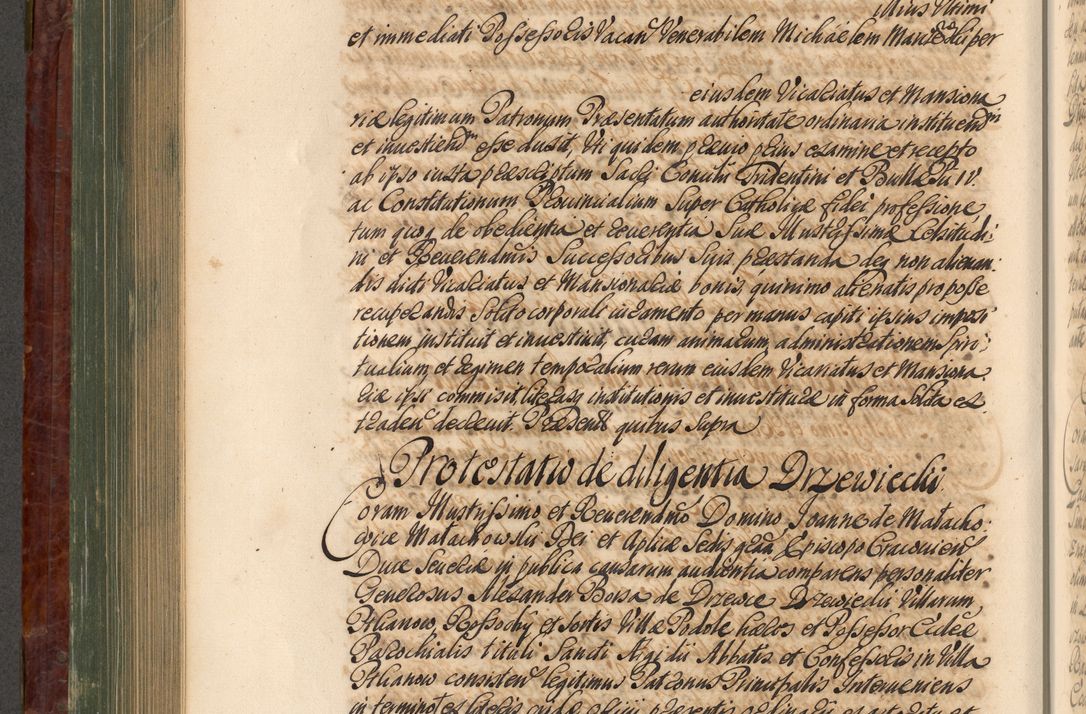 illius ultimi
et immediati Possessoris Vacan. Venerabilem Michaelem per
eiusdem Vicariatus et Mansiona
riæ legitimum Patronum Præsentatum authoritate ordinaria instituend
et inuestiend esse duxit, Uti quidem præuio prius examine et recepto
ab ipso iuxta præscriptum Sacri Concilii Tridentini et Bullæ Pii IV.
ac Constitutionum Prouincialium super Catholicæ fidei professione,
tum quoq de obedientia et reuerentia Suæ Illustrissimæ Celsitudi:
ni et Reuerendmis Successoribus Suis præstanda deq non alienan:
dis dicti Vicariatus et Mansionariæ bonis, quinimo alienatis pro posse
recuperandis solito corporali iuramento per manus capiti ipsius imposi:
tionem, instituit et inuestiuit, curam animarum, administrationem Spiri:
tualium, et regimen temporalium rerum eiusdem Vicariatus et Mansiona:
riæ ipsi commisit, literasq institutionis et inuestituræ in forma solita ex:
traden. decreuit. Præsent. quibus supra
Protestatio de diligentia Drzewiecki
Coram Illustrissimo et Reuerendmo Domino Joanne de Małacho:
wice Małachowski Dei et Aplicæ Sedis gratia Episcopo Cracouien.
Duce Seueriæ in publica causarum audientia comparens personaliter
Generosus Alexander Borsa de Drzewce Drzewiecki Villarum
Rossochy et sortis Villæ Podole hæres et Possessor Ecclæ
Parochialis tituli Sancti Ægidii Abbatis et Confessoris in Villa
consisten. legitimus Patronus Principalis Interueniens
in termino